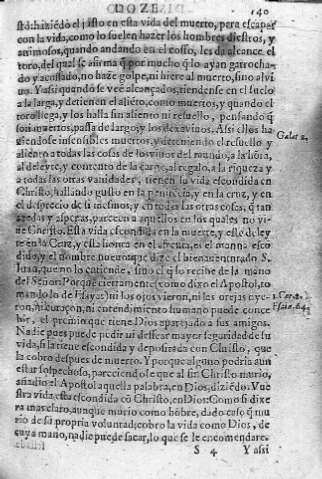 140
con la vida, como lo suelen hazer los hombres diestros, y
animosos, quando andando en el cosso, les da alcance el
toro, del qual se afirma q̃ por mucho q̃ lo ayan garrocha-
do y acossado, no haze golpe, ni hiere al muerto, sino al vi-
uo. Y assi quando se vee alcançados, tiendense en el suelo
a la larga, y detienen el aliẽto, como muertos, y quando el
toro llega, y los halla sin aliento ni resuello, pensando q̃
son muertos, passa de largo, y los dexa viuos. Assi ellos ha
ziendose insensibles muertos, y deteniendo el resuello y
aliento a todas las cosas de los viuos del mundo, a la hõra,
al deleyte, y contento de la carne, al regalo, a la riqueza y
a todas las otras vanidades, tienen la vida escondida en
Christo, hallando gusto en la penitẽcia, y en la cruz, y en
el desprecio de si mesmos, y en todas las otras cosas, q̃ tan
azedas y asperas, parecen a aquellos en los quales no vi-
ue Christo. Esta vida escondida en la muerte, y este deley
te en la Cruz, y esta honra en el afrenta, es el manna escõ
dido, y el nombre nueuo que dize el bienauenturado S.
Iuan, que no lo entiende, sino el q̃ lo recibe de la mano
del Señor. Porque ciertamente (como dixo el Apostol, to
mandolo de Esayas) ni los ojos vieron, ni las orejas oye-
ron, ni coraçon, ni entendimiento humano puede conce
bir, el premio que tiene Dios aparejado a sus amigos.
Nadie pues puede ni dessear mayor seguridad de su
vida, si la tiene escondida y depositada con Christo, que
la cobro despues de muerto. Y porque alguno podria aun
estar sospechoso, pareciendole que al fin Christo murio,
añadio el Apostol aquella palabra, en Dios, diziẽdo. Vue
stra vida, esta escondida cõ Christo, en Dios: Como si dixe
ra mas claro, aunque murio como hõbre, dado caso q̃ mu
rio de su propria voluntad, cobro la vida como Dios, de
cuya mano, nadie puede sacar, lo que se le encomendare.
S 4 Y assi
Galat. 2.
1. Cor. 2.
Esaie. 64.